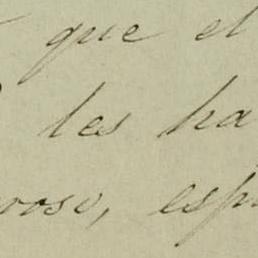 que el
les ha
oroso, esp